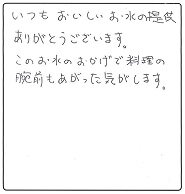 いつも おいしい お水の提供
ありがとうございます。
このお水のおかげで料理の
腕前もあがった気がします。